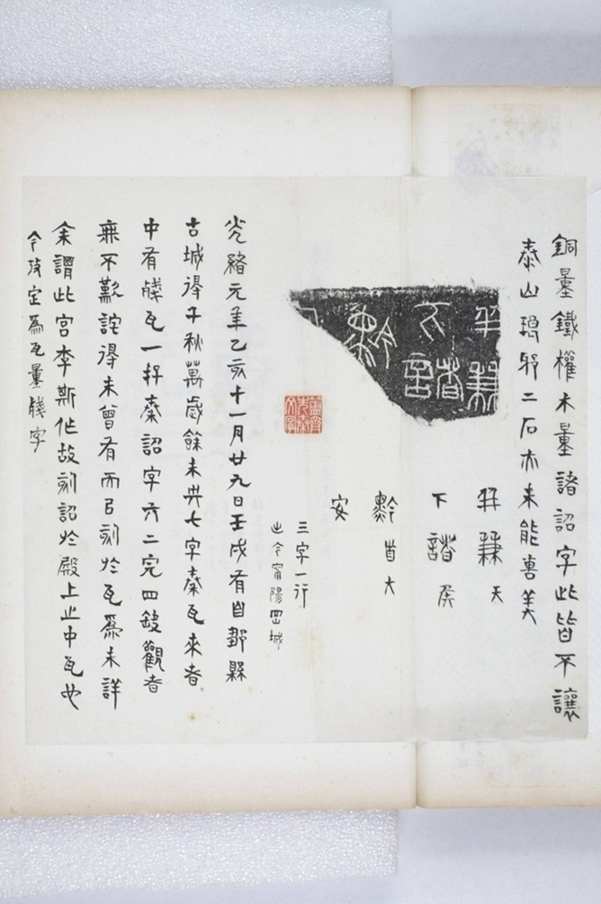 銅量鐵權木量諸詔字此皆不讓
泰山琅邪二石亦未能專美
并兼
下諸
黔
并兼天
下諸矦
黔首大
安
三字一行
出今甯陽罡城
光緒元年乙亥十一月廿九日壬戌有自鄒縣
古城得千秋萬歲餘未央七字秦瓦來者
中有殘瓦一秦詔字六二完四缺觀者
無不歎詫得未曾有而㠯刻於瓦爲未詳
余謂此宮李斯作故刻詔於殿上止中瓦也
今改定爲瓦量殘字